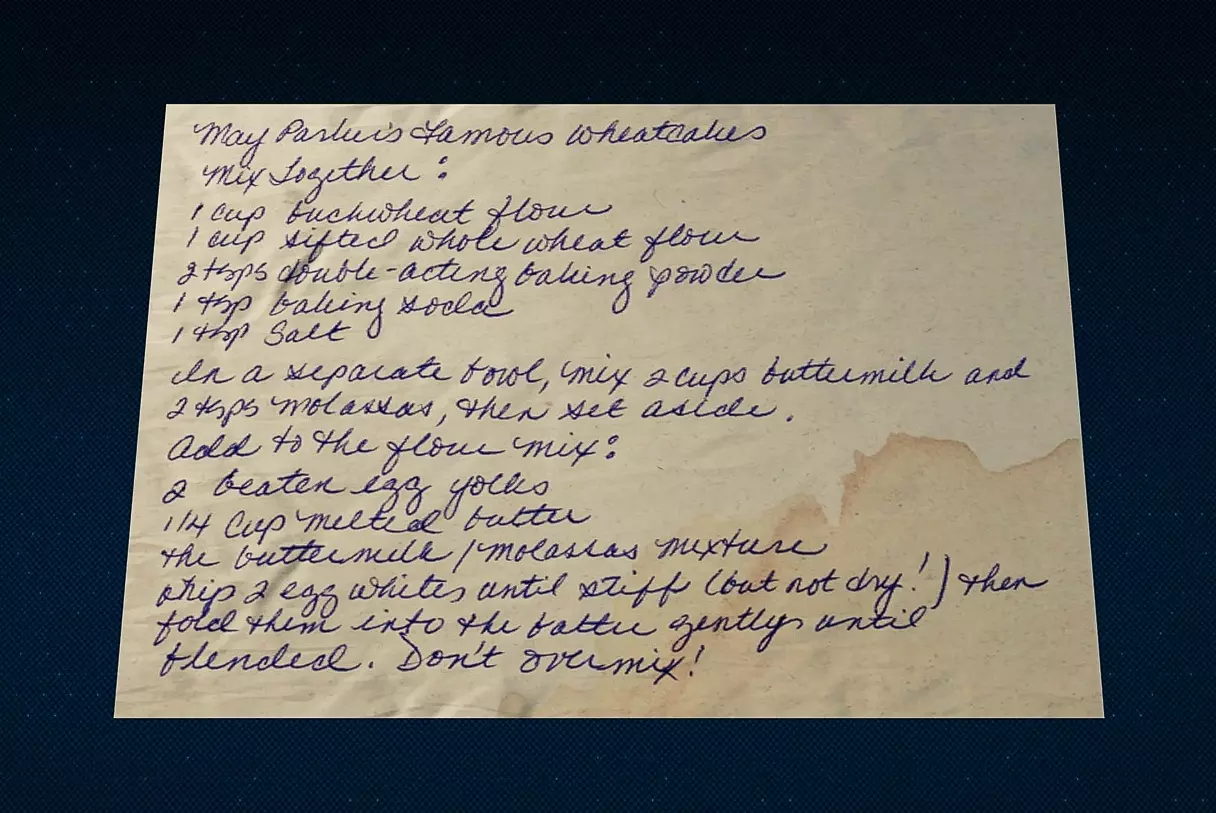 May Parker's Famous Wheatcakes
Mix Together:
1 cup buckwheat flour
1 cup sifted whole wheat flour
2 tsps double-acting baking powder
1 tsp baking soda
1 tsp Salt
In a separate bowl, mix 2 cups buttermilk and
2 tsps molassas, then set aside.
Add to the flour mix:
2 beaten egg yolks
1/4 Cup melted butter
the buttermilk/molassas mixture
whip 2 egg whites until stiff (but not dry!) then
fold them into the batter gently until
blended. Don't overmix!